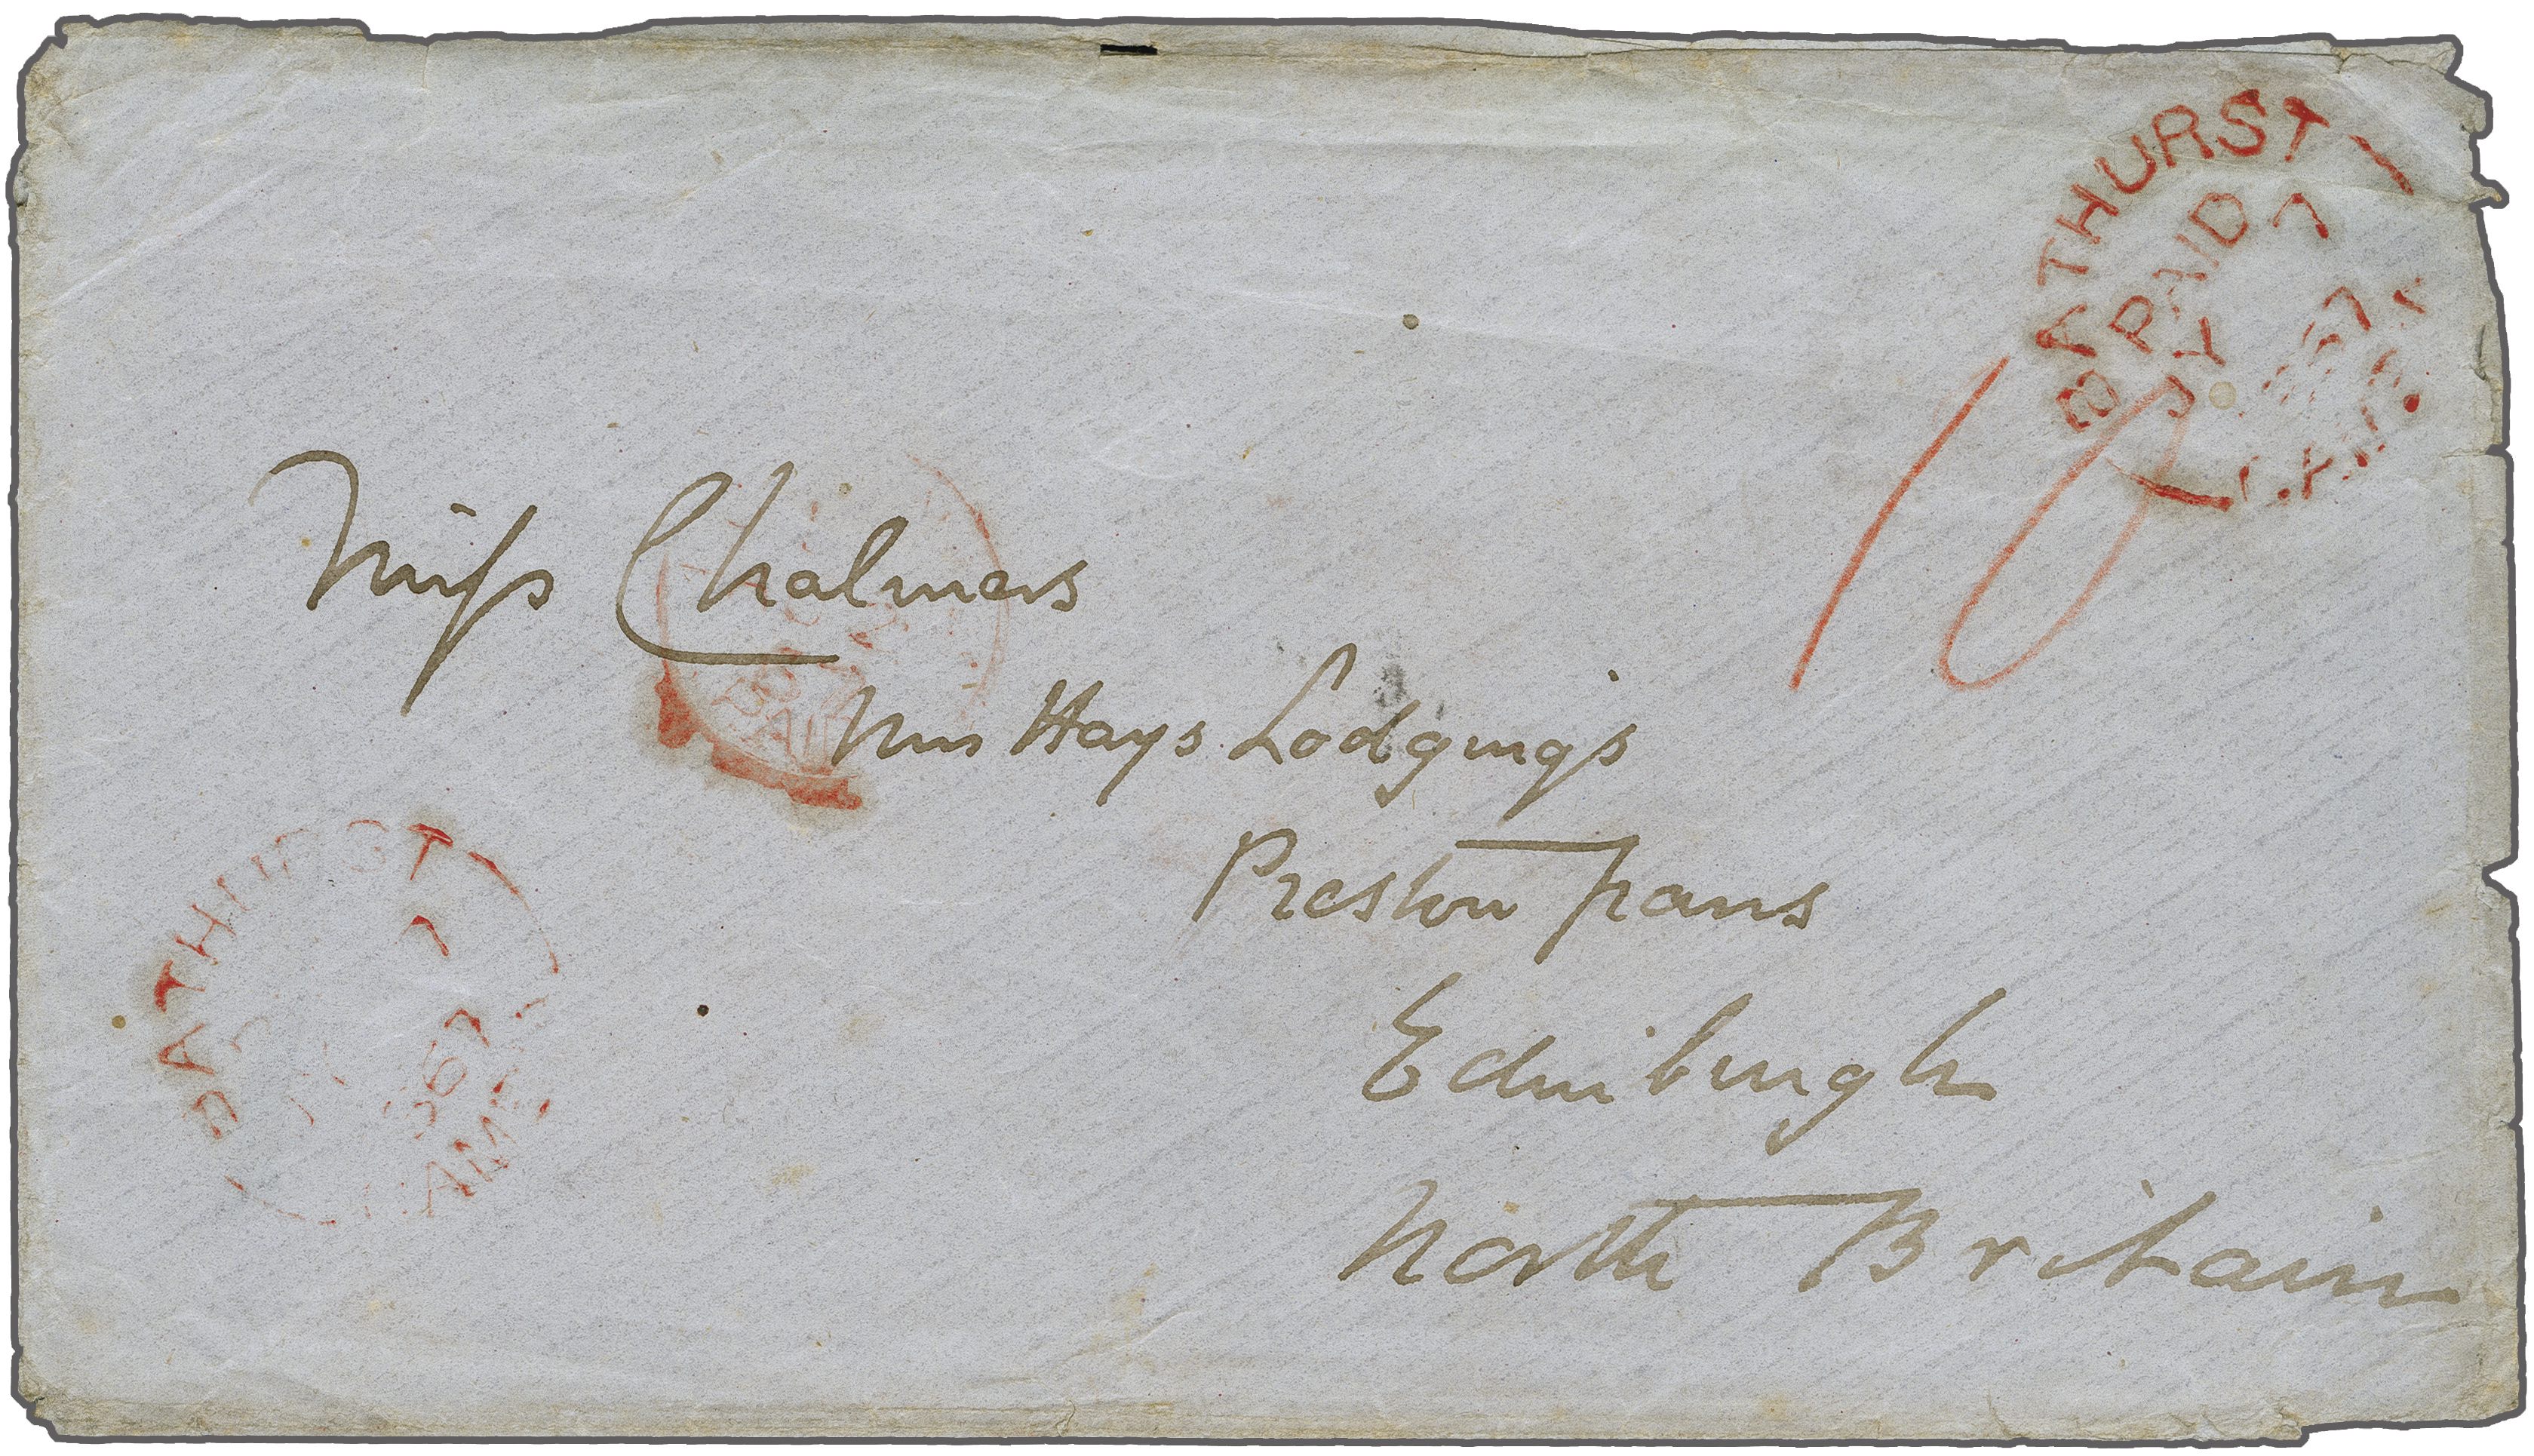 BATHURST
PAID
JY 7
67
10
Miss Chalmers
Mrs Hays Lodgings
Preston pans
Edinburgh
North Britain
PAID